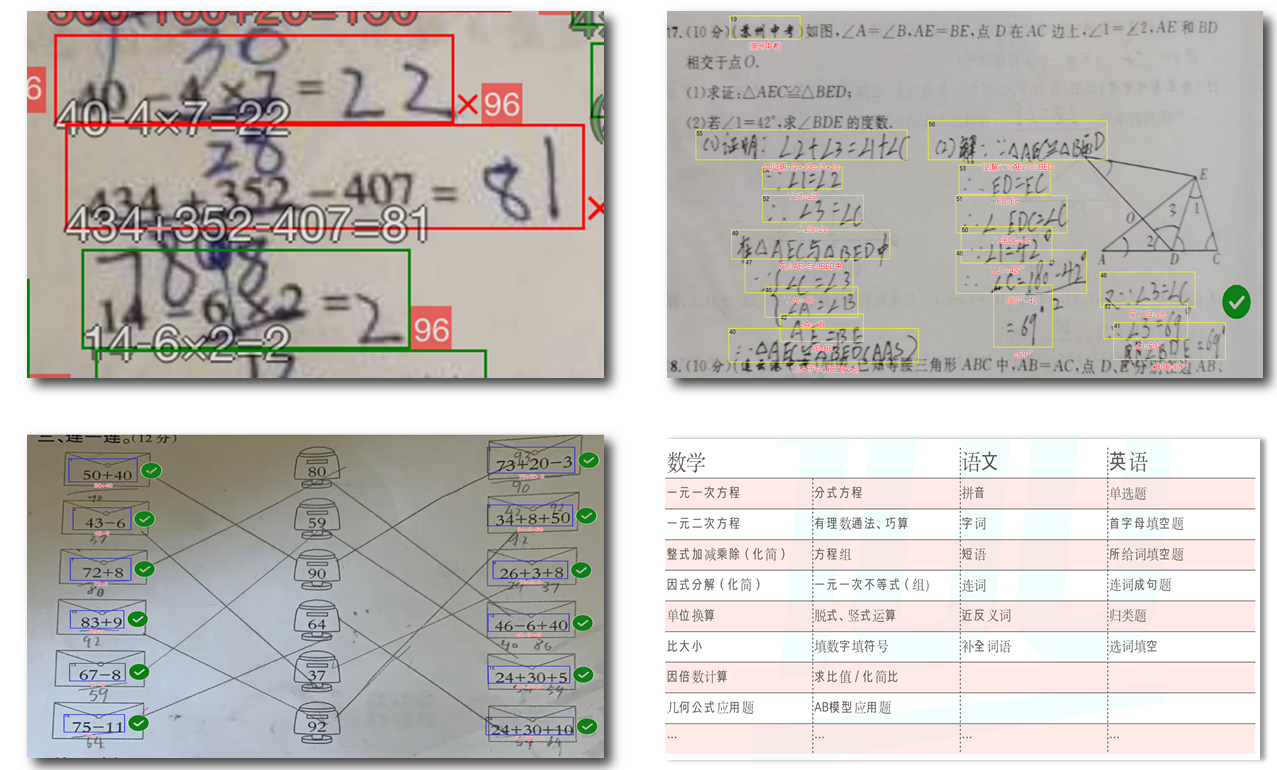 300-160+20=150
30
40-4×7=22
×96
40-4×7=22
28
434+352-407=81
×
434+352-407=81
786
14-6×2=2
96
14-6×2=2
17.(10分)(苏州中考)如图,∠A=∠B,AE=BE,点D在AC边上,∠1=∠2,AE和BD
相交于点O.
(1)求证:△AEC≌△BED;
(2)若∠1=42°,求∠BDE的度数.
(1)证明: ∠2+∠3=∠1+∠C
∵∠1=∠2
∴∠3=∠C
在△AEC与△BED中
∵∠C=∠3
∠A=∠B
AE=BE
∴△AEC≌△BED(AAS)
(2)解:∵△AEC≌△BED
∴ED=EC
∴∠EDC=∠C
∵∠1=42°
∴∠C=180°-42°
2
=69°
又∵∠3=∠C
∴∠3=69°
即∠BDE=69°
E
O
3
1
2
A
D
C
8.(10分)(连云港中考)已知等腰三角形ABC中,AB=AC,点D、E分别在边AB、
三、连一连。(12分)
50+40
80
73+20-3
93
90
43-6
37
59
34+8+50
42
92
72+8
80
90
26+3+8
29
37
83+9
92
64
46-6+40
40
86
67-8
59
37
24+30+5
54
59
75-11
64
92
24+30+10
54
64
数学
语文
英语
一元一次方程
分式方程
拼音
单选题
一元二次方程
有理数通法、巧算
字词
首字母填空题
整式加减乘除（化简）
方程组
短语
所给词填空题
因式分解（化简）
一元一次不等式（组）
连词
连词成句题
单位换算
脱式、竖式运算
近反义词
归类题
比大小
填数字填符号
补全词语
选词填空
因倍数计算
求比值/化简比
几何公式应用题
AB模型应用题
...
...
...
...